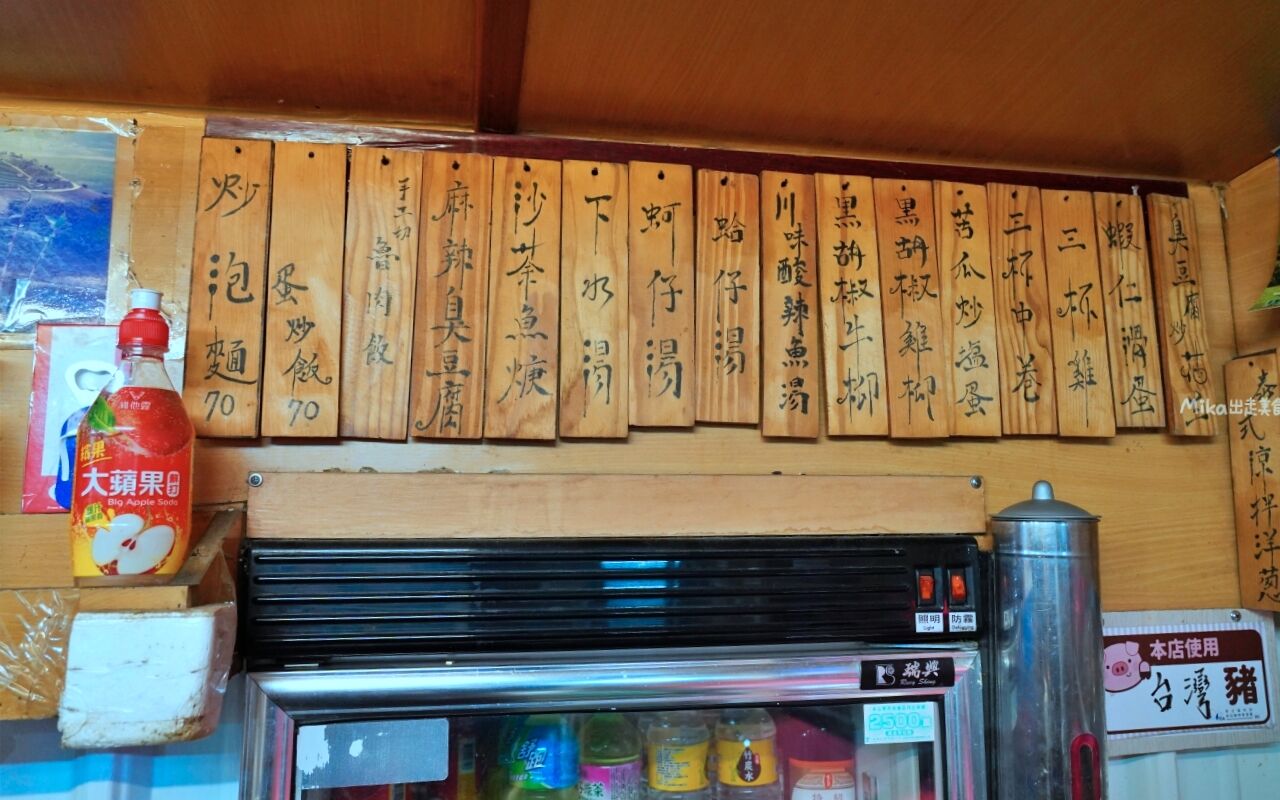 炒泡麵 70
蛋炒飯 70
手工切
魯肉飯
麻辣臭豆腐
沙茶魚焿
下水湯
蚵仔湯
蛤仔湯
川味酸辣魚湯
黑胡椒牛柳
黑胡椒雞柳
苦瓜炒塩蛋
三杯中卷
三杯雞
蝦仁滑蛋
臭豆腐炒
Mika出走美食
泰式涼拌洋蔥
維他露
大蘋果
Big Apple Soda
照明
Light
防霧
Defogging
瑞興
Ruey Shing
2500
舒跑
竹炭水
本店使用
台灣豬